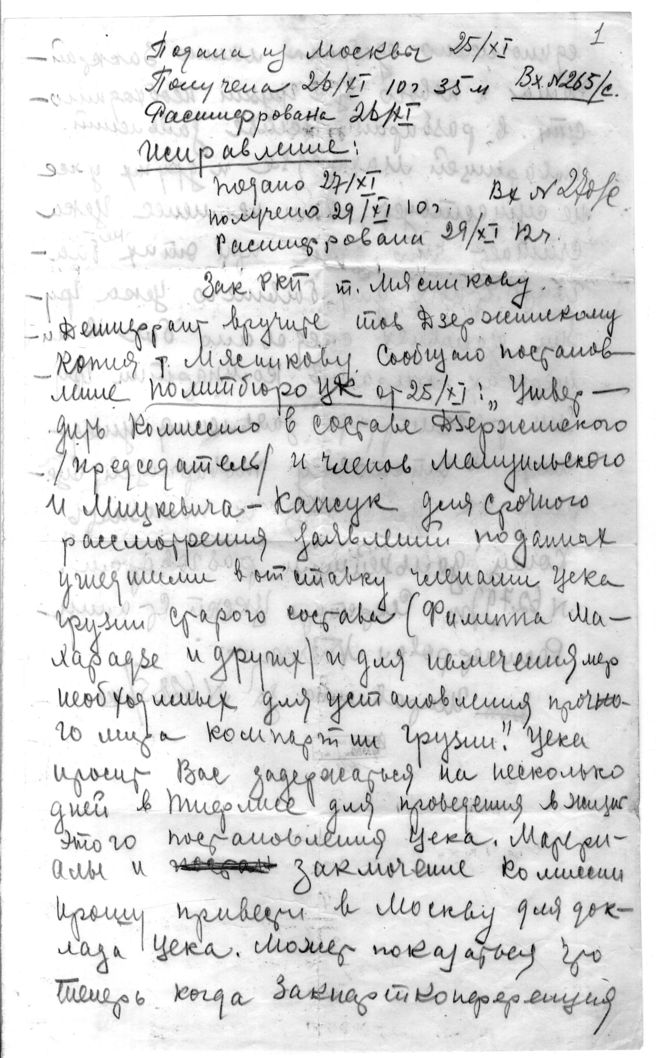 1
Подана из Москвы 25/XI
Получена 26/XI 10ч 35м Вх.N265/с.
Расшифрована 26/XI
Исправление:
Подано 27/XI Вх N 270/с
получено 29/XI 10ч
Расшифрована 29/XI 12ч.
Зак РКП т. Мясникову.
Дешифрант вручите тов Дзержинскому
копия т. Мясникову. Сообщаю постанов-
ление Политбюро ЦК от 25/XI: „Утвер-
дить Комиссию в составе Дзержинского
/председатель/ и членов Мануильского
и Мицкевича-Капсук для срочного
рассмотрения заявлений поданных
ушедшими в отставку членами Цека
Грузии старого состава (Филиппа Ма-
харадзе и других) и для намечения мер
необходимых для установления прочно-
го мира компартии Грузии." Цека
просит Вас задержаться на несколько
дней в Тифлисе для проведения в жизнь
этого постановления Цека. Матери-
алы и заключение комиссии
прошу привести в Москву для док-
лада Цека. Может показаться что
теперь когда Закпартконференция